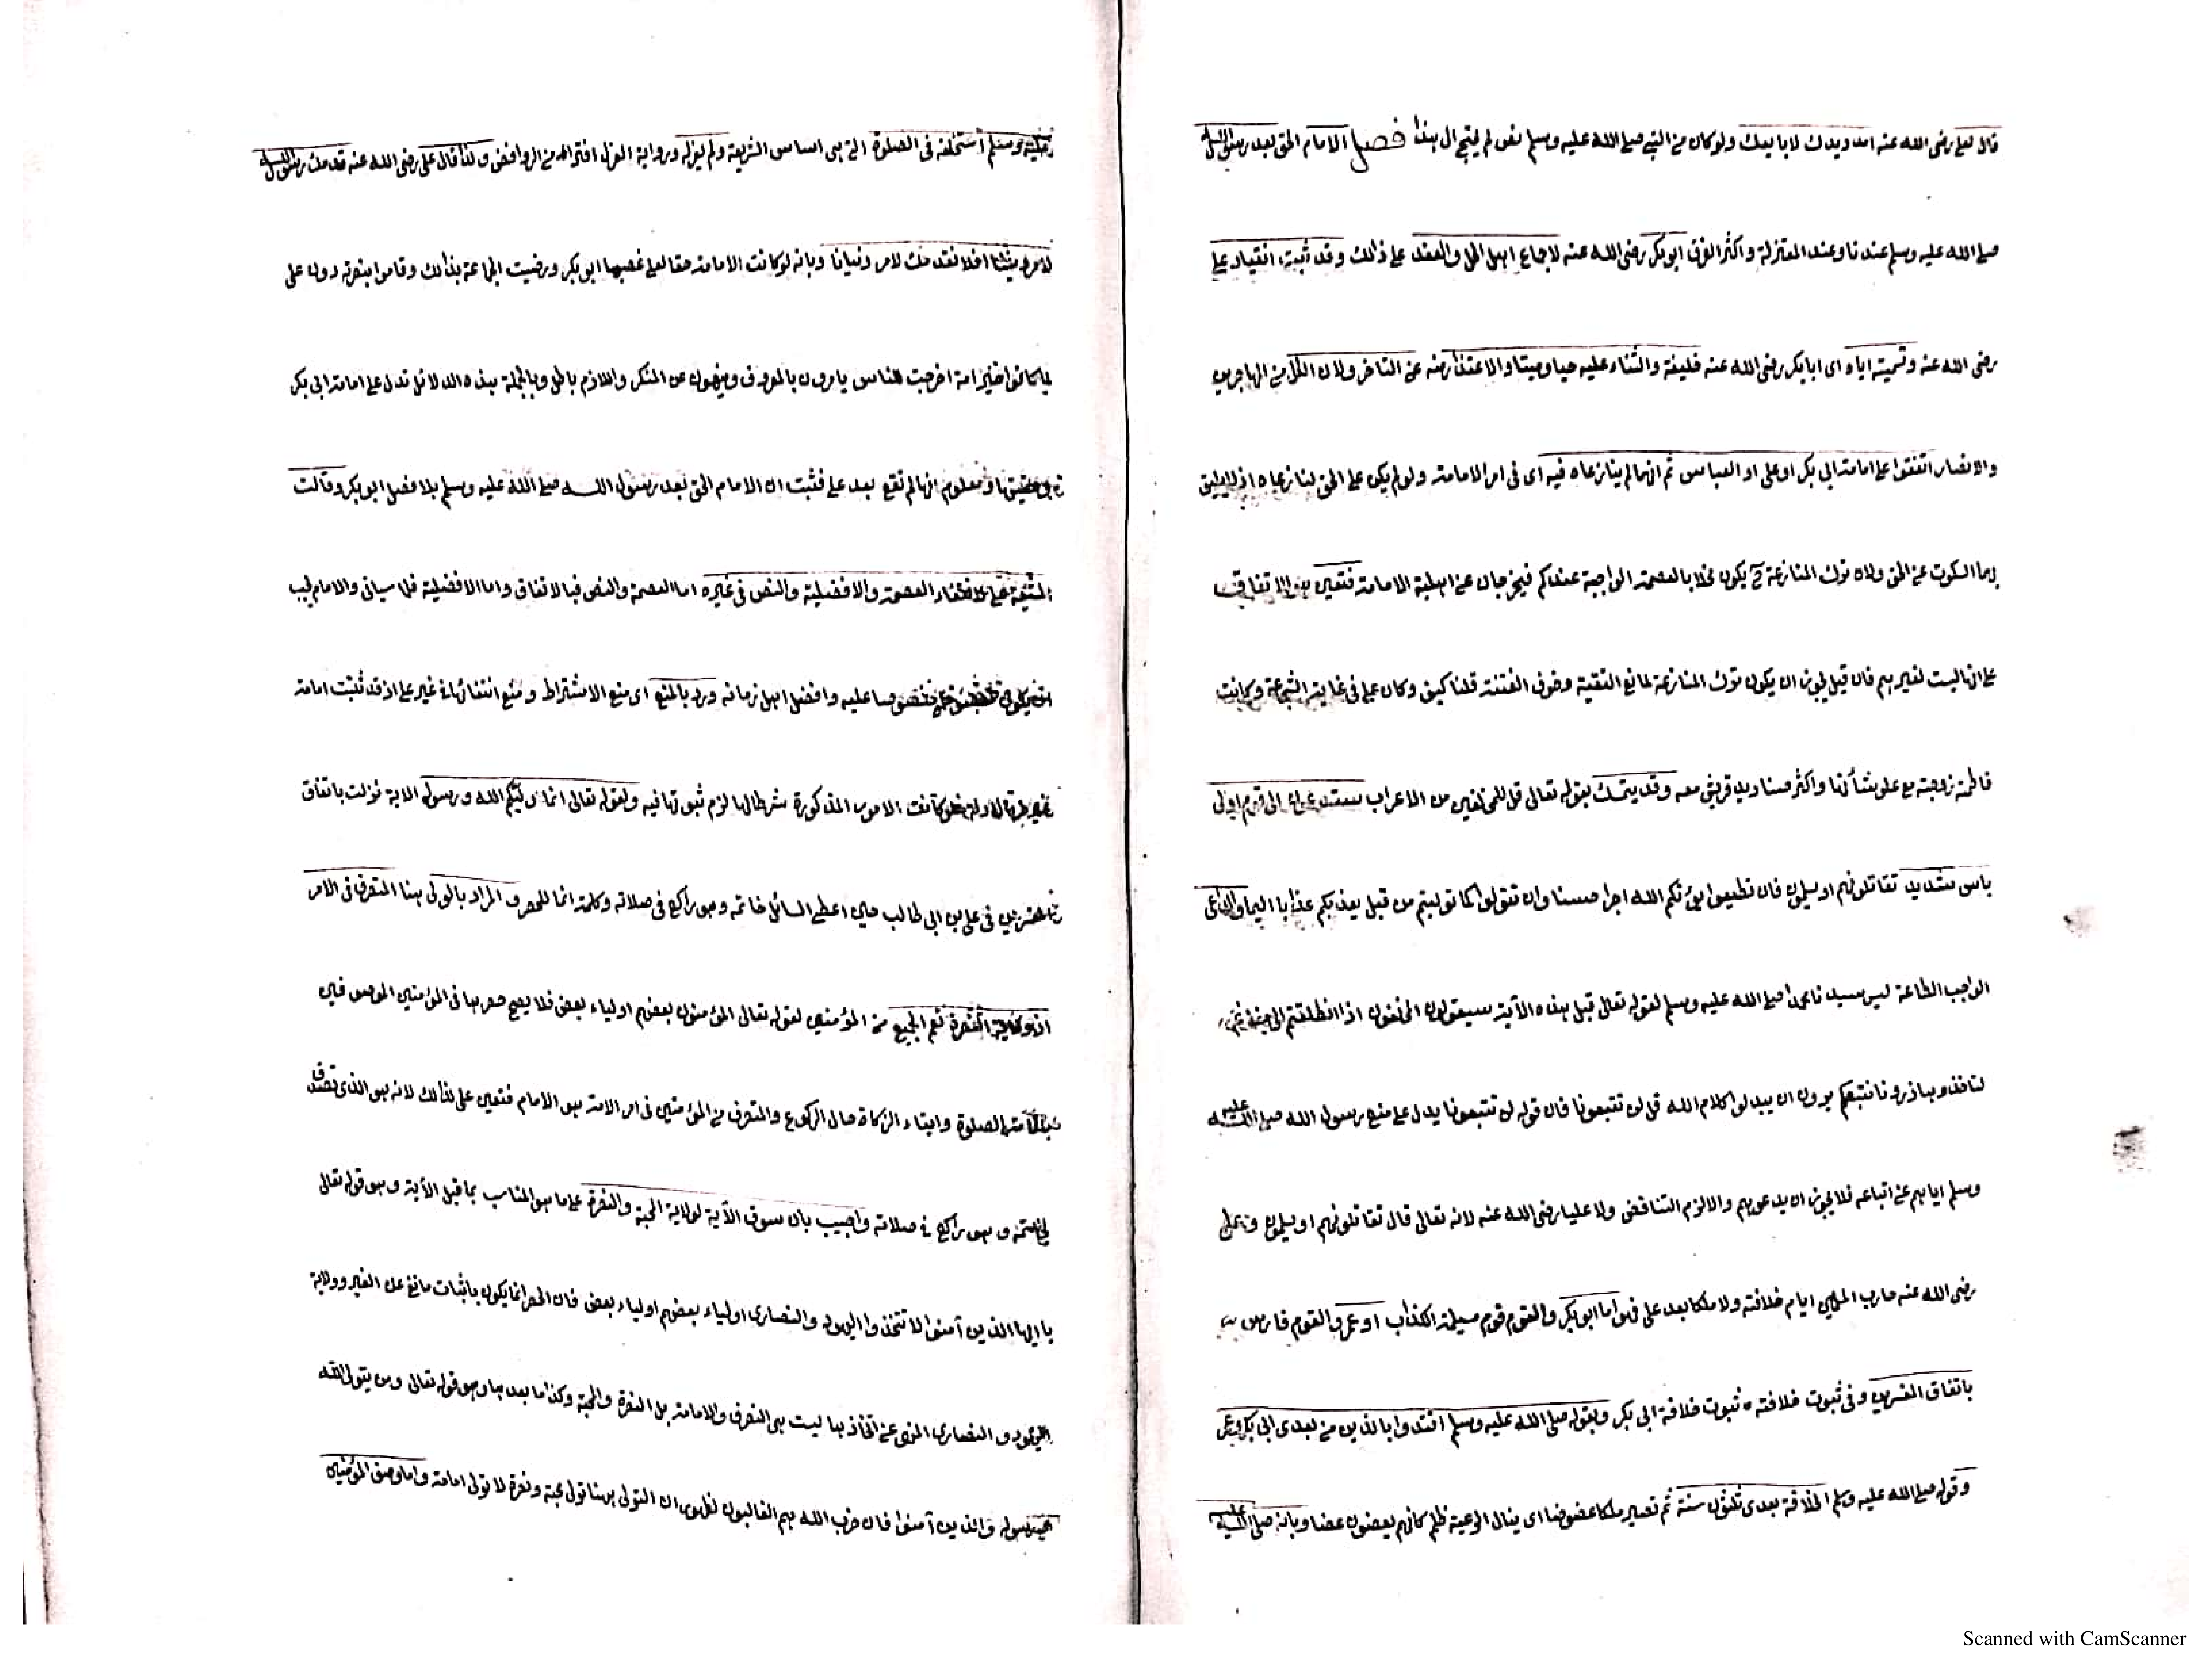 قال لعلي رضى الله عنه امدد يدك لابايعك ولو كان من النبي صلى الله عليه وسلم نص لم يحتج الى هذا فصل الامام الحق بعد رسول الله
صلى الله عليه وسلم عندنا وعند المعتزلة واكثر الفرق ابوبكر رضى الله عنه لاجماع اهل الحل والعقد على ذلك وقد ثبت انقياد على
رضى الله عنه وتسميته اياه اى ابابكر رضى الله عنه خليفة والثناء عليه حيا وميتا والاعتذار منه عن التاخر ولان الكل من المهاجرين
والانصار اتفقوا على امامة ابى بكر او على او العباس ثم انهما لم ينازعاه فيه اى فى امر الامامة ولو لم يكن على الحق لنازعاه اذ لا يليق
بهما السكوت عن الحق ولان ترك المنازعة ح يكون مخلا بالعصمة الواجبة عندكم فيخرجان عن اهلية الامامة فتعين بهذا الاتفاق
على انها ليست لغيرهم فان قيل يجوز ان يكون ترك المنازعة لمانع التقية وخوف الفتنة قلنا كيف وكان على فى غاية الشجاعة وكانت
فاطمة زوجته مع علو شأنها واكثر صناديد قريش معه وقد يتمسك بقوله تعالى قل للمخلفين من الاعراب ستدعون الى قوم اولى
باس شديد تقاتلونهم او يسلمون فان تطيعوا يؤتكم الله اجرا حسنا وان تتولوا كما توليتم من قبل يعذبكم عذابا اليما والداعى
الواجب الطاعة ليس سيدنا محمدا صلى الله عليه وسلم لقوله تعالى قبل هذه الآية سيقولون المخلفون اذا انطلقتم الى مغانم
لتاخذوها ذرونا نتبعكم يريدون ان يبدلوا كلام الله قل لن تتبعونا فان قوله لن تتبعونا يدل على منع رسول الله صلى الله عليه
وسلم اياهم عن اتباعه فلا يجوز ان يدعوهم والا لزم التناقض ولا عليا رضى الله عنه لانه تعالى قال تقاتلونهم او يسلمون وعلى
رضى الله عنه حارب المسلمين ايام خلافته ولا ملكا بعد على فهو اما ابوبكر والقوم قوم مسيلمة الكذاب او عمر والقوم فارس
باتفاق المفسرين وفى ثبوت خلافته ثبوت خلافة ابى بكر وبقوله صلى الله عليه وسلم اقتدوا بالذين من بعدى ابى بكر وعمر
وقوله صلى الله عليه وسلم الخلافة بعدى ثلثون سنة ثم تصير ملكا عضوضا اى ينال الرعية ظلم كانهم يعضون عضا وبانه صلى الله عليه
وسلم استخلفه فى الصلوة التى هى اساس الشريعة ولم يعزله ورواية العزل افتراء من الروافض ولذا قال على رضى الله عنه قدمك رسول الله
لامر ديننا افلا نقدمك لامر دنيانا وبانه لو كانت الامامة حقا لعلى غصبها ابوبكر ورضيت الجماعة بذلك وقاموا بنصرته دون على
لما كانوا خير امة اخرجت للناس يامرون بالمعروف وينهون عن المنكر واللازم باطل وبالجملة هذه الدلائل تدل على امامة ابى بكر
ومعلوم انها لم تقع بعد على فثبت ان الامام الحق بعد رسول الله صلى الله عليه وسلم بلا فصل ابو بكر وقالت
الشيعة على لانتفاء العصمة والافضلية والنص فى غيره اما العصمة والنص فبالاتفاق واما الافضلية فلما سياتى والامام يجب
ان يكون منصوصا عليه وافضل اهل زمانه ورد بالمنع اى منع الاشتراط ومنع انتفائها فى غير على اذ قد ثبتت امامة
غيره فلو كانت الامور المذكورة شرطا لها لزم ثبوتها فيه ولقوله تعالى انما وليكم الله ورسوله الاية نزلت باتفاق
المفسرين فى على بن ابى طالب حين اعطى السائل خاتمه وهو راكع فى صلاته وكلمة انما للحصر والمراد بالولى هنا المتصرف فى الامر
اذ ولاية النصرة تعم الجميع من المؤمنين لقوله تعالى المؤمنون بعضهم اولياء بعض فلا يصح حصرها فى المؤمنين الموصوفين
باقامة الصلوة وايتاء الزكاة حال الركوع والمتصرف من المؤمنين فى امر الامة هو الامام فتعين على لذلك لانه هو الذى تصدق
بخاتمه وهو راكع فى صلاته واجيب بان سوق الآية لولاية المحبة والنصرة على ما هو المناسب بما قبل الآية وهو قوله تعالى
يا ايها الذين آمنوا لا تتخذوا اليهود والنصارى اولياء بعضهم اولياء بعض فان الحصر انما يكون باثبات ما نفى عن الغير وولاية
اليهود والنصارى المنهى عن اتخاذها ليست هى التصرف والامامة بل النصرة والمحبة وكذا ما بعدها وهو قوله تعالى ومن يتولى الله
ورسوله والذين آمنوا فان حزب الله هم الغالبون لظهور ان التولى ههنا تولى محبة ونصرة لا تولى امامة واما وصف المؤمنين